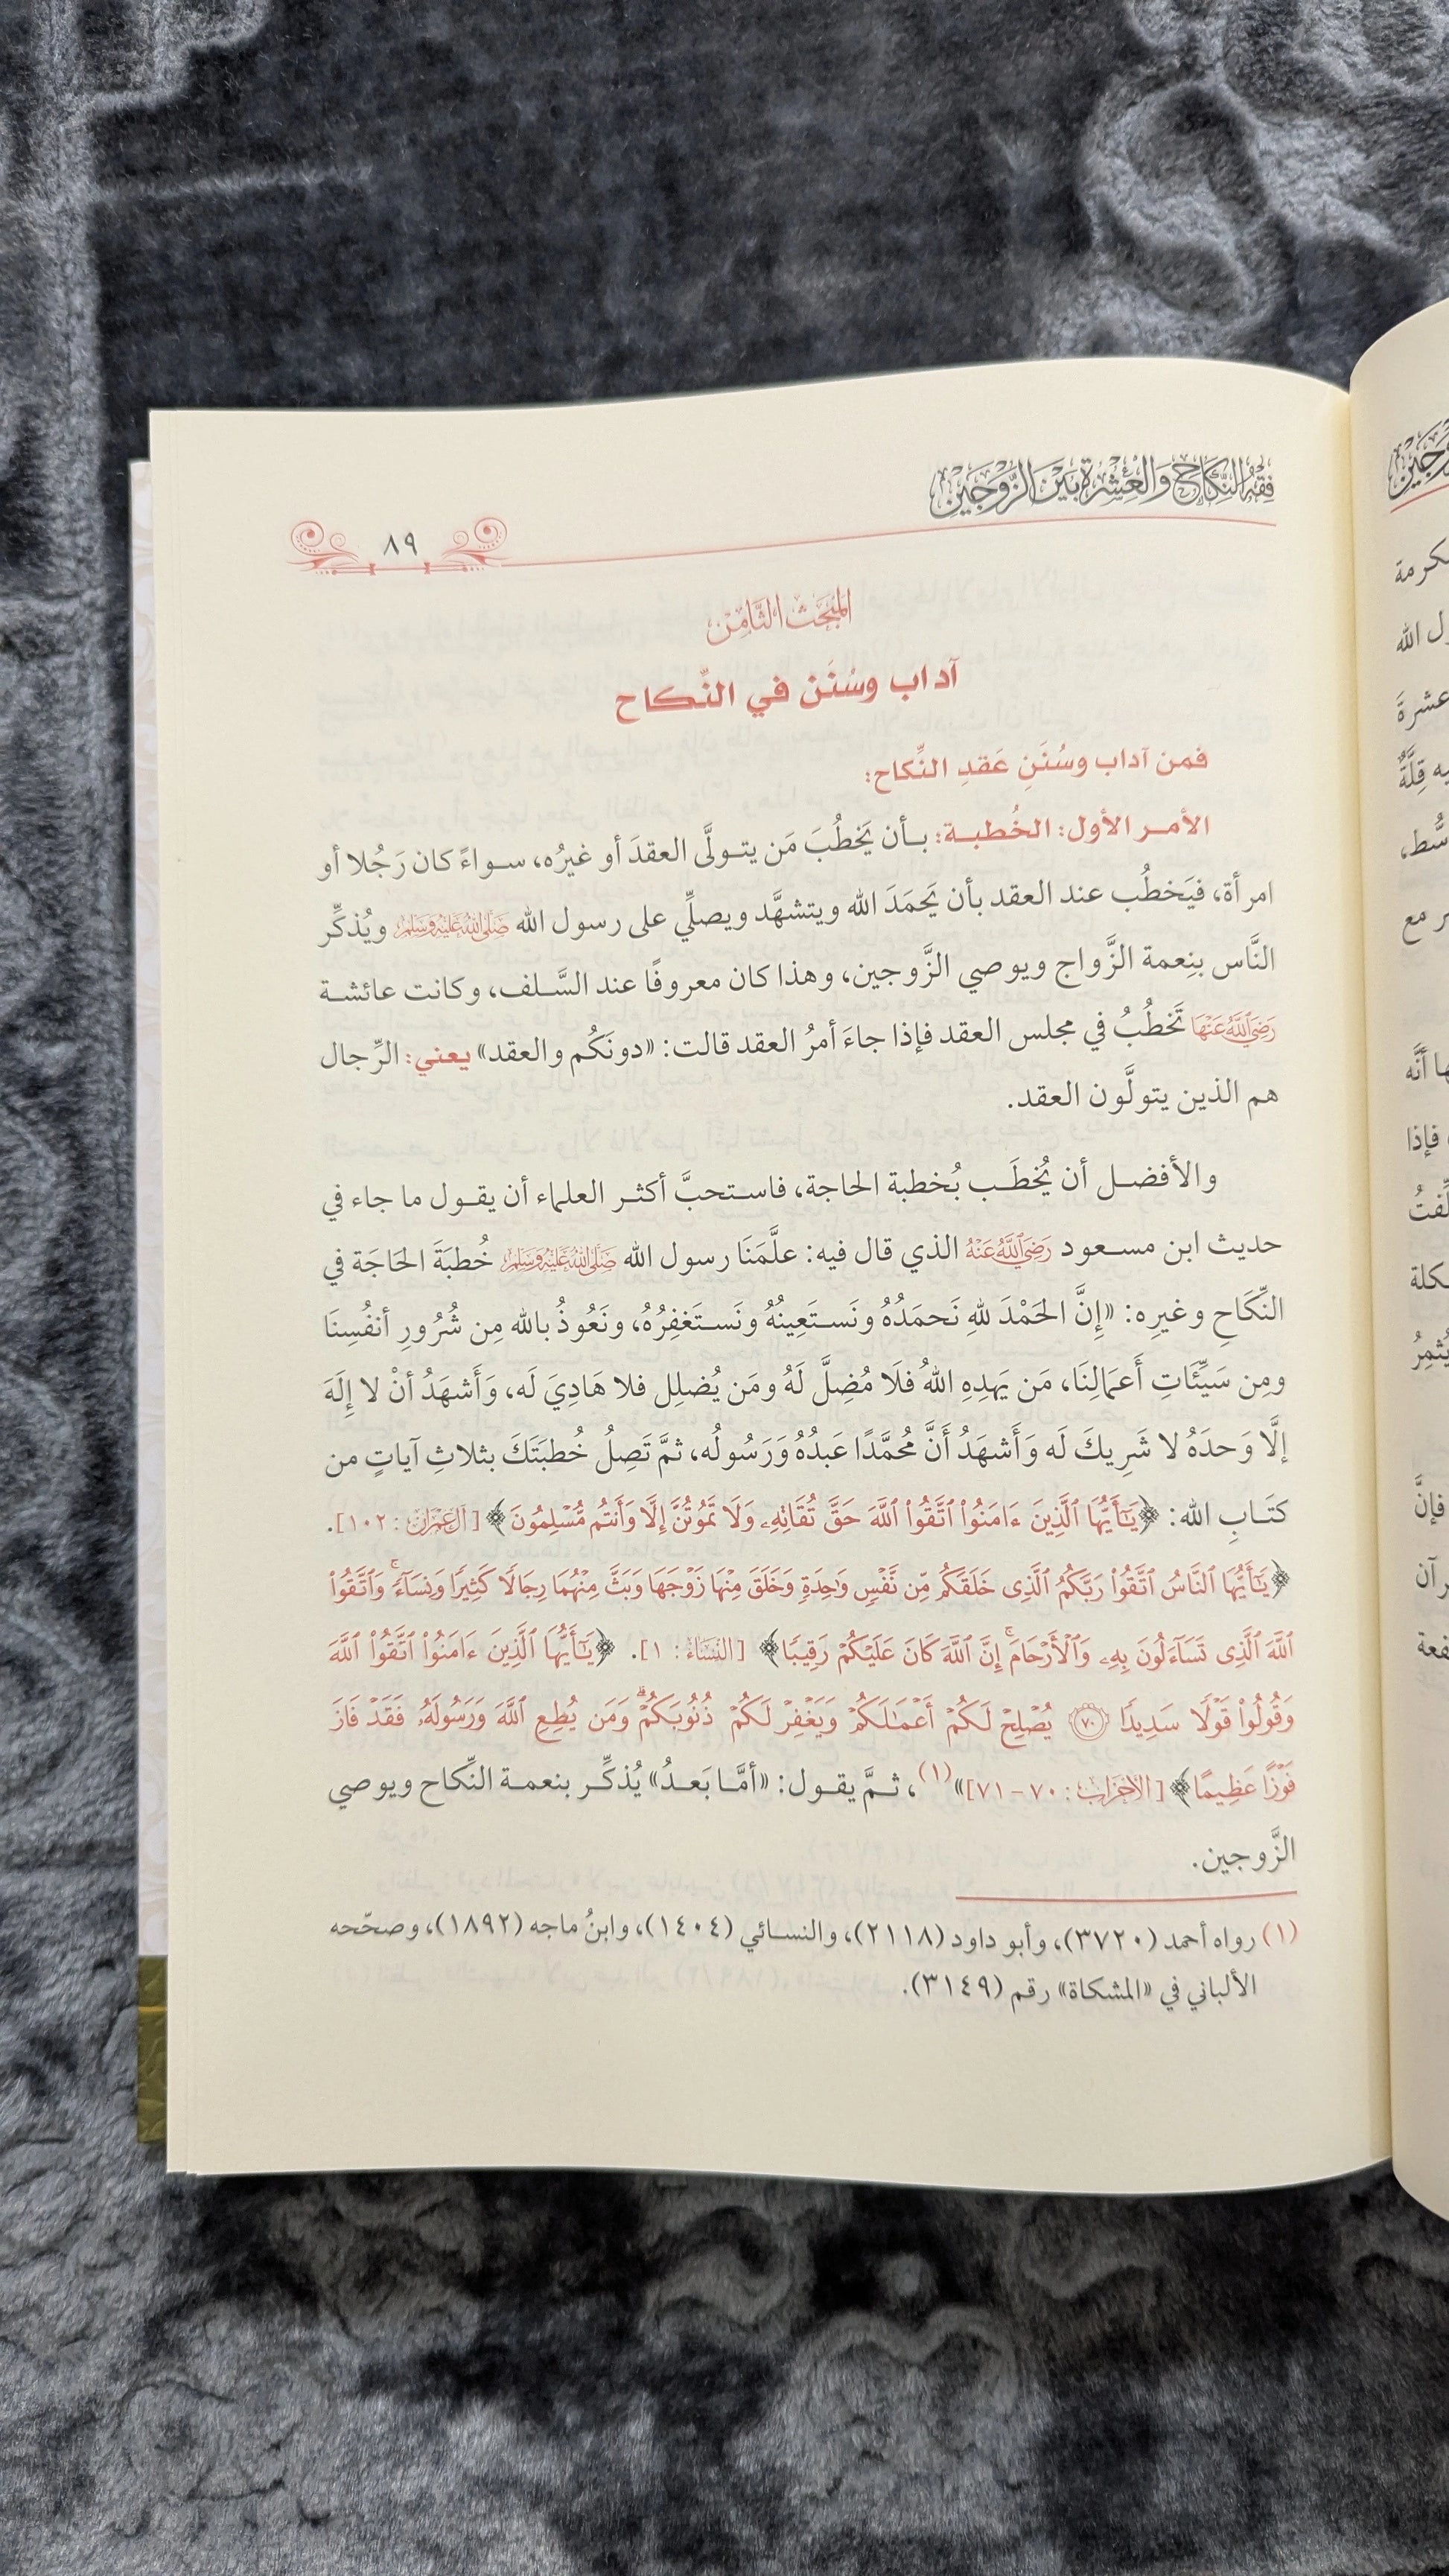 فِقْهُ النِّكَاحِ وَالْعِشْرَةِ بَيْنَ الزَّوْجَيْنِ
٨٩
المَبْحَثُ الثَّامِنُ
آداب وسُنَن في النِّكاح
فمن آداب وسُنَنِ عَقدِ النِّكاح:
الأمـر الأول: الخُطبـة: بـأن يَخطُبَ مَن يتـولَّى العقدَ أو غيرُه، سـواءً كان رَجُلا أو
امرأة، فيَخطُب عند العقد بأن يَحمَدَ الله ويتشهَّد ويصلِّي على رسول الله صَلَّى اللَّهُ عَلَيْهِ وَسَلَّمَ ويُذكِّر
النَّاس بنِعمة الزَّواج ويوصي الزَّوجين، وهذا كان معروفًا عند السَّـلف، وكانت عائشـة
رَضِيَ اللَّهُ عَنْهَا تَخطُبُ في مجلس العقد فإذا جاءَ أمرُ العقد قالت: «دونَكُم والعقد» يعني: الرِّجال
هم الذين يتولَّون العقد.
والأفضـل أن يُخطَـب بُخطبة الحاجة، فاسـتحبَّ أكثـر العلماء أن يقـول ما جاء في
حديث ابن مسـعود رَضِيَ اللَّهُ عَنْهُ الذي قال فيه: علَّمَنَا رسول الله صَلَّى اللَّهُ عَلَيْهِ وَسَلَّمَ خُطبَةَ الحَاجَة في
النِّكَاحِ وغيرِه: «إنَّ الحَمْدَ للهِ نَحمَدُهُ ونَسـتَعِينُهُ ونَسـتَغفِرُهُ، ونَعُوذُ بالله مِن شُرُورِ أنفُسِنَا
ومِن سَيِّئَاتِ أَعمَالِنَا، مَن يَهدِهِ اللهُ فلَا مُضِلَّ لَهُ ومَن يُضلِل فلا هَادِيَ لَه، وَأَشهَدُ أنْ لا إِلَهَ
إلَّا وَحدَهُ لا شَرِيكَ لَه وَأَشهَدُ أَنَّ مُحمَّدًا عَبدُهُ وَرَسُولُه، ثمَّ تَصِلُ خُطبَتَكَ بثلاثِ آياتٍ من
كتَـابِ الله: ﴿يَٰٓأَيُّهَا ٱلَّذِينَ ءَامَنُوا۟ ٱتَّقُوا۟ ٱللَّهَ حَقَّ تُقَاتِهِۦ وَلَا تَمُوتُنَّ إِلَّا وَأَنتُم مُّسْلِمُونَ﴾ [آل عِمْرَانَ: ١٠٢].
﴿يَٰٓأَيُّهَا ٱلنَّاسُ ٱتَّقُوا۟ رَبَّكُمُ ٱلَّذِى خَلَقَكُم مِّن نَّفْسٍ وَٰحِدَةٍ وَخَلَقَ مِنْهَا زَوْجَهَا وَبَثَّ مِنْهُمَا رِجَالًا كَثِيرًا وَنِسَآءً ۚ وَٱتَّقُوا۟
ٱللَّهَ ٱلَّذِى تَسَآءَلُونَ بِهِۦ وَٱلْأَرْحَامَ ۚ إِنَّ ٱللَّهَ كَانَ عَلَيْكُمْ رَقِيبًا﴾ [النِّسَاء: ١]. ﴿يَٰٓأَيُّهَا ٱلَّذِينَ ءَامَنُوا۟ ٱتَّقُوا۟ ٱللَّهَ
وَقُولُوا۟ قَوْلًا سَدِيدًا ۝٧٠ يُصْلِحْ لَكُمْ أَعْمَٰلَكُمْ وَيَغْفِرْ لَكُمْ ذُنُوبَكُمْ ۗ وَمَن يُطِعِ ٱللَّهَ وَرَسُولَهُۥ فَقَدْ فَازَ
فَوْزًا عَظِيمًا﴾ [الأحزاب: ٧٠-٧١]»(١)، ثـمَّ يقـول: «أمَّـا بَعـدُ» يُذكِّـر بنعمـة النِّكاح ويوصي
الزَّوجين.
(١) رواه أحمد (٣٧٢٠)، وأبو داود (٢١١٨)، والنسـائي (١٤٠٤)، وابنُ ماجه (١٨٩٢)، وصحّحه
الألباني في «المشكاة» رقم (٣١٤٩).